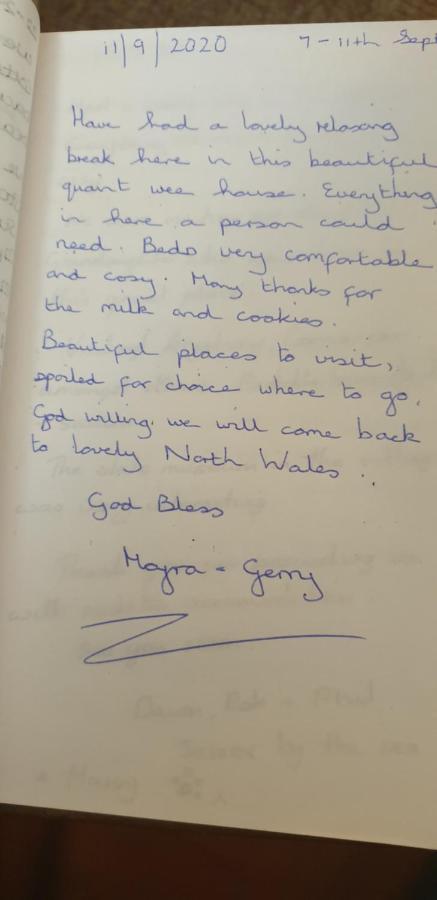 11/9/2020 7-11th Sept
Have had a lovely relaxing
break here in this beautiful
quaint wee house. Everything
in here a person could
need. Beds very comfortable
and cosy. Many thanks for
the milk and cookies.
Beautiful places to visit,
spoiled for choice where to go.
God willing. we will come back
to lovely North Wales..
God Bless
Moyra - Gerry